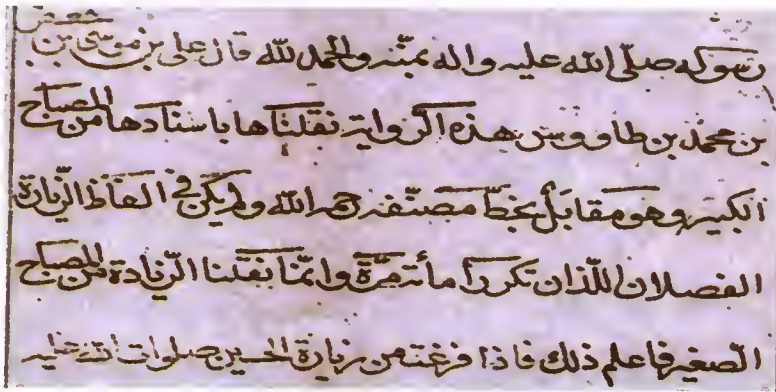 رسوله صلّى الله عليه واله بمنّه والحمد لله قال على بن موسى بن جعفر
بن محمد بن طاووس هذه الرواية نقلناها باسنادها من المصباح
الكبير وهو مقابل بخطّ مصنّفه رحمه الله ولم يكن في الفاظ الزيارة
الفصلان اللّذان تكررا مأة مرّة وانّما نقلنا الزيادة من المصباح
الصغير فاعلم ذلك فاذا فرغت من زيارة الحسين صلوات الله عليه